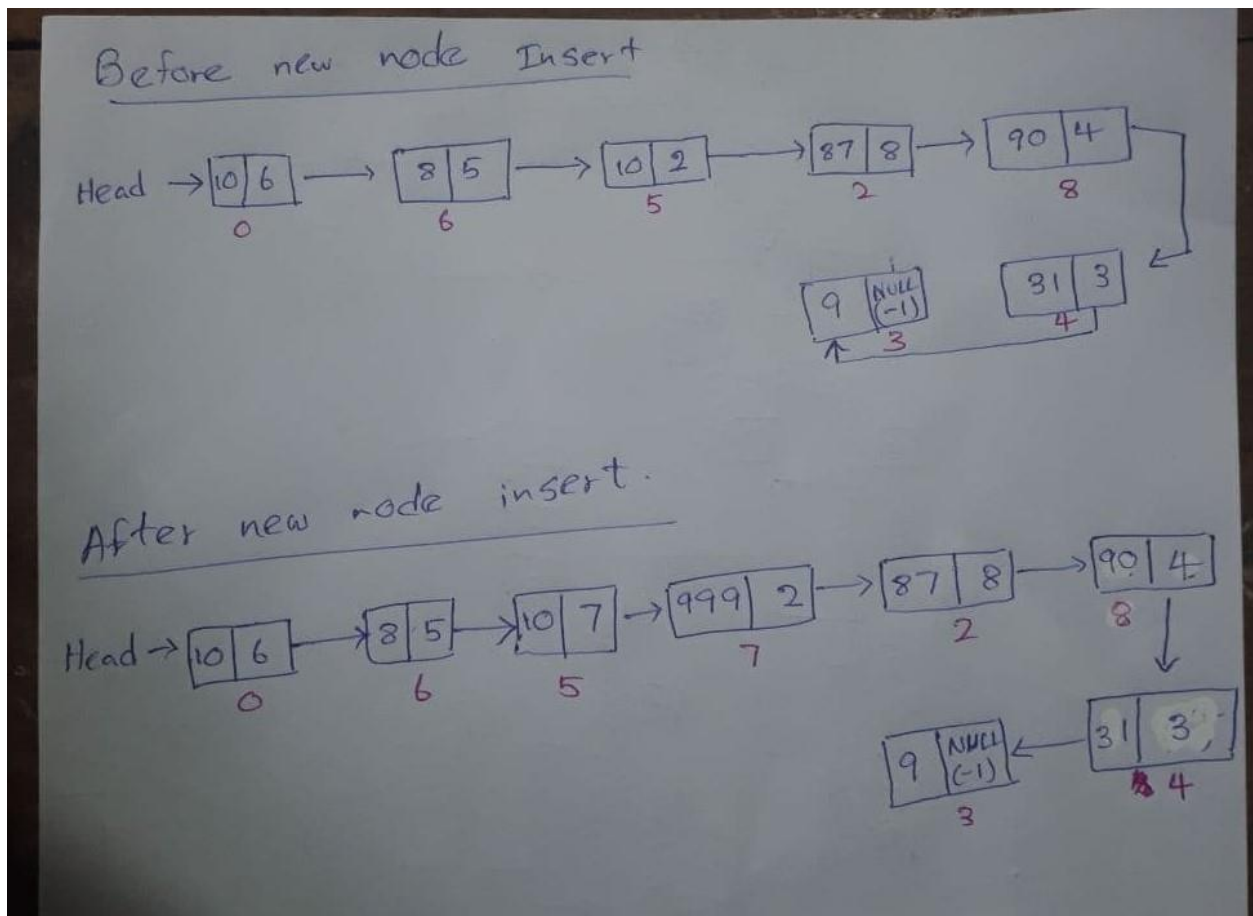 Before new node Insert
Head → 10 6 → 8 5 → 10 2 → 87 8 → 90 4
0 6 5 2 8
9 NULL (-1) 31 3
3 4
After new node insert.
Head → 10 6 → 8 5 → 10 7 → 999 2 → 87 8 → 90 4
0 6 5 7 2 8
9 NULL (-1) ← 31 3
3 4